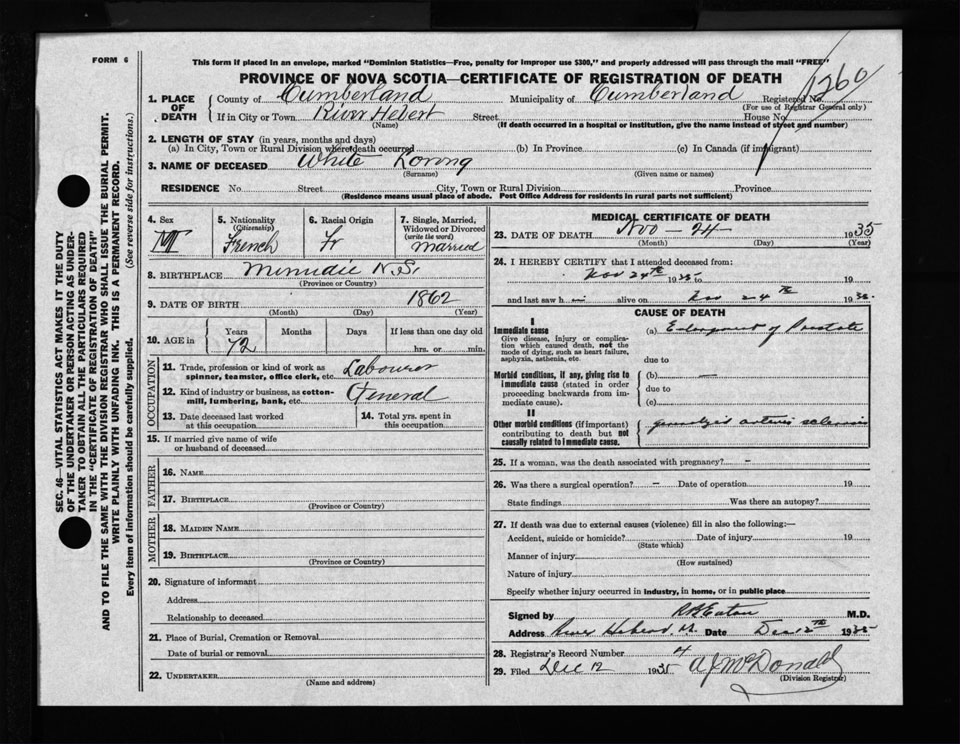 FORM 6
This form if placed in an envelope, marked "Dominion Statistics—Free, penalty for improper use $300," and properly addressed will pass through the mail "FREE"
PROVINCE OF NOVA SCOTIA—CERTIFICATE OF REGISTRATION OF DEATH
1260
1. PLACE OF DEATH
County of Cumberland Municipality of Cumberland Registered No.
(For use of Registrar General only)
If in City or Town River Hebert Street House No.
(Name) (If death occurred in a hospital or institution, give the name instead of street and number)
2. LENGTH OF STAY (in years, months and days)
(a) In City, Town or Rural Division where death occurred (b) In Province (c) In Canada (if immigrant)
3. NAME OF DECEASED White Loring
(Surname) (Given name or names)
RESIDENCE No. Street City, Town or Rural Division Province
(Residence means usual place of abode. Post Office Address for residents in rural parts not sufficient)
4. Sex M
5. Nationality (Citizenship) French
6. Racial Origin Fr
7. Single, Married, Widowed or Divorced (write the word) married
8. BIRTHPLACE Minudie N.S.
(Province or Country)
9. DATE OF BIRTH 1862
(Month) (Day) (Year)
10. AGE in Years Months Days If less than one day old
72 hrs. or min.
OCCUPATION
11. Trade, profession or kind of work as spinner, teamster, office clerk, etc. Labourer
12. Kind of industry or business, as cotton-mill, lumbering, bank, etc. General
13. Date deceased last worked at this occupation
14. Total yrs. spent in this occupation
15. If married give name of wife or husband of deceased
FATHER
16. NAME
17. BIRTHPLACE
(Province or Country)
MOTHER
18. MAIDEN NAME
19. BIRTHPLACE
(Province or Country)
20. Signature of informant
Address
Relationship to deceased
21. Place of Burial, Cremation or Removal
Date of burial or removal
22. UNDERTAKER
(Name and address)
MEDICAL CERTIFICATE OF DEATH
23. DATE OF DEATH Nov — 24 — 1935
(Month) (Day) (Year)
24. I HEREBY CERTIFY that I attended deceased from:
Nov 24th 1935 to 19
and last saw h im alive on Nov 24th 1935
CAUSE OF DEATH
I
Immediate cause
Give disease, injury or complication which caused death, not the mode of dying, such as heart failure, asphyxia, asthenia, etc.
(a) Enlargement of Prostate
due to
Morbid conditions, if any, giving rise to immediate cause (stated in order proceeding backwards from immediate cause).
(b) —
due to
(c)
II
Other morbid conditions (if important) contributing to death but not causally related to immediate cause.
generalized arterio sclerosis
25. If a woman, was the death associated with pregnancy? –
26. Was there a surgical operation? – Date of operation 19
State findings Was there an autopsy?
27. If death was due to external causes (violence) fill in also the following:—
Accident, suicide or homicide? Date of injury 19
(State which)
Manner of injury
(How sustained)
Nature of injury
Specify whether injury occurred in industry, in home, or in public place
Signed by Eaton M.D.
Address River Hebert Date Dec 12th 1935
28. Registrar's Record Number 4
29. Filed Dec 12 1935 A J McDonald
(Division Registrar)
SEC. 46—VITAL STATISTICS ACT MAKES IT THE DUTY
OF THE UNDERTAKER OR PERSON ACTING AS UNDER-
TAKER TO OBTAIN ALL THE PARTICULARS REQUIRED
IN THE "CERTIFICATE OF REGISTRATION OF DEATH"
AND TO FILE THE SAME WITH THE DIVISION REGISTRAR WHO SHALL ISSUE THE BURIAL PERMIT.
WRITE PLAINLY WITH UNFADING INK. THIS IS A PERMANENT RECORD.
Every item of information should be carefully supplied. (See reverse side for instructions.)